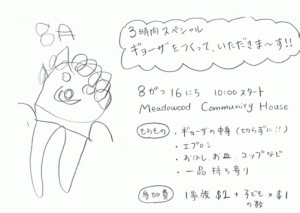 8A
3時間スペシャル
ギョーザをつくって、いただきま〜す!!
8がつ16にち 10:00スタート
Meadowood Community House
もちもの
・ギョーザの中身(切らずに!!)
・エプロン
・おはし、お皿、コップなど
・一品持ち寄り
参加費 1家族 $2 + 子ども × $1
の数